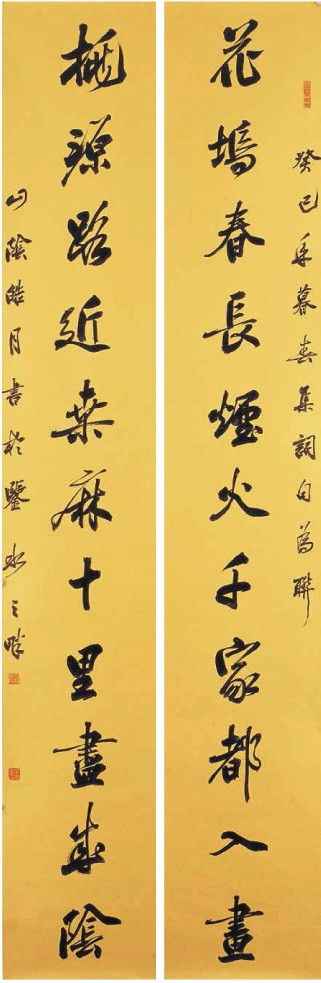 癸巳年暮春集詞句為聯
花塢春長煙火千家都入畫
桃源路近桑麻十里盡成陰
山陰皓月書於鑒水之畔